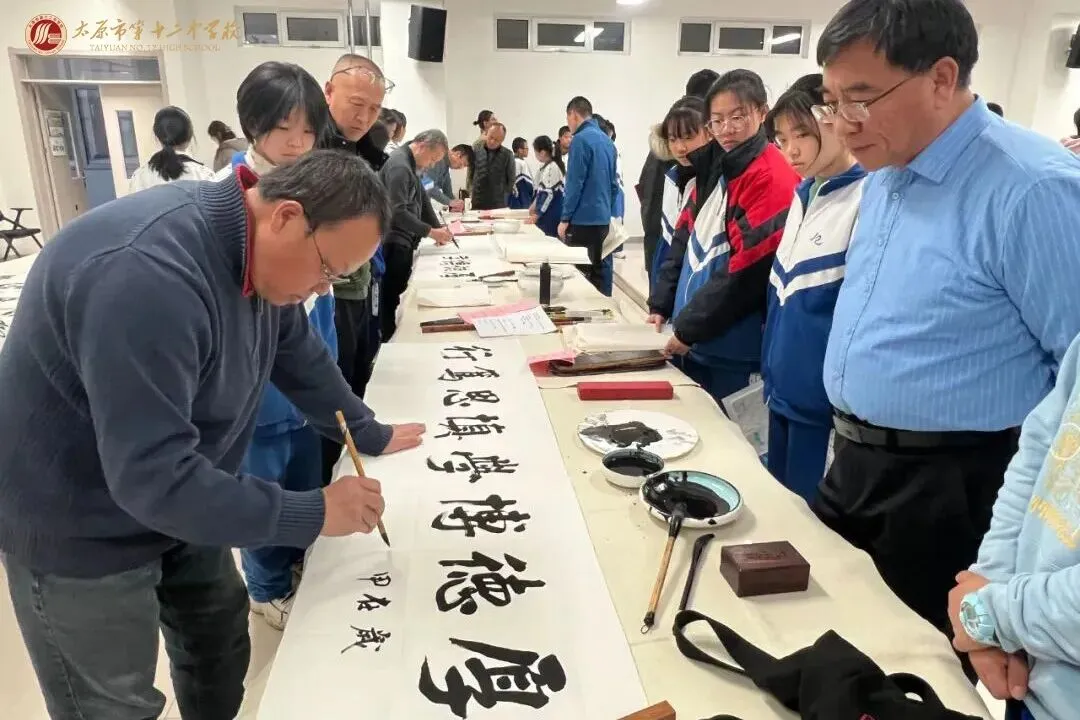 太原市第十二中学校
TAIYUAN NO.12 HIGH SCHOOL
厚德博學慎思篤行
甲辰歲